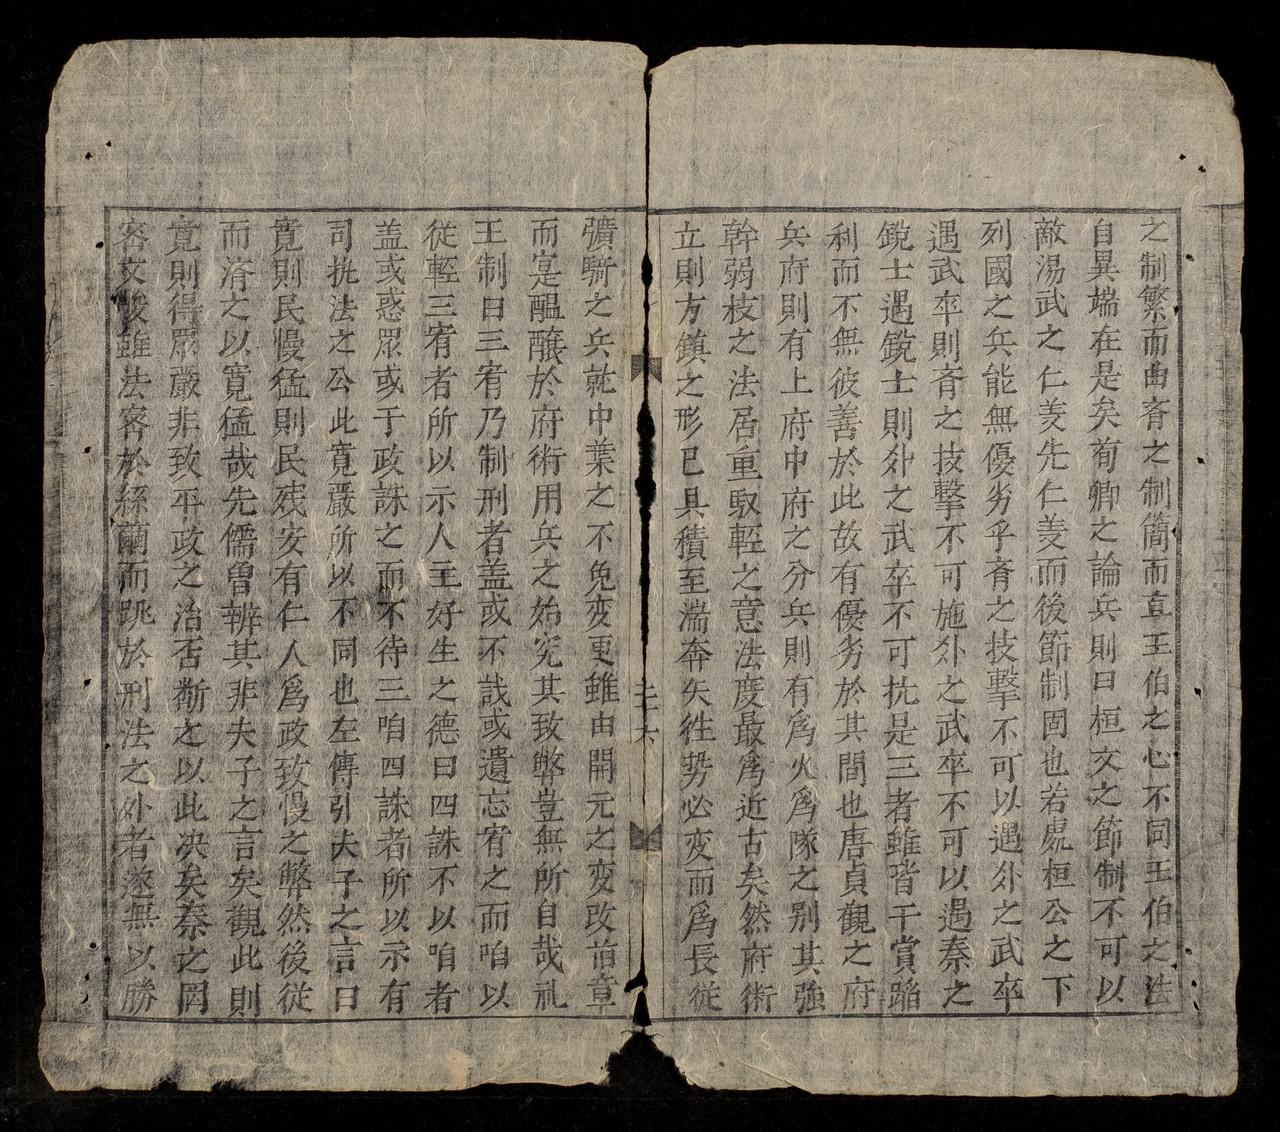 之制繁而曲斉之制簡而直王伯之心不同王伯之法
自異端在是矣荀卿之論兵則曰桓文之節制不可以
敵湯武之仁义先仁义而後節制固也若處桓公之下
列國之兵能無優劣乎斉之技擊不可以遇外之武卒
遇武卒則斉之技擊不可施外之武卒不可以遇秦之
銳士遇銳士則外之武卒不可抗是三者雖皆干賞蹈
利而不無彼善於此故有優劣於其間也唐貞觀之府
兵府則有上府中府之分兵則有爲火爲隊之别其強
幹弱枝之法居重馭輕之意法度最爲近古矣然府術
立則方鎮之形已具積至湍奔矢徃势必变而爲長従
二十六
彍騎之兵就中葉之不免变更雖由開元之变改首章
而寔醖釀於府術用兵之始宄其致弊豈無所自哉礼
王制曰三宥乃制刑者盖或不哉或遺忘宥之而咱以
従輕三宥者所以示人主好生之德曰四誅不以咱者
盖或惑眾或于政誅之而不待三咱四誅者所以示有
司抗法之公此寛嚴所以不同也左傳引夫子之言曰
寛則民慢猛則民残安有仁人爲政致慢之弊然後従
而済之以寛猛哉先儒曽辨其非夫子之言矣觀此則
寛則得眾嚴非致平政之治否断之以此决矣秦之罔
密文峻雖法密於絲繭而跳於刑法之外者遂無以勝